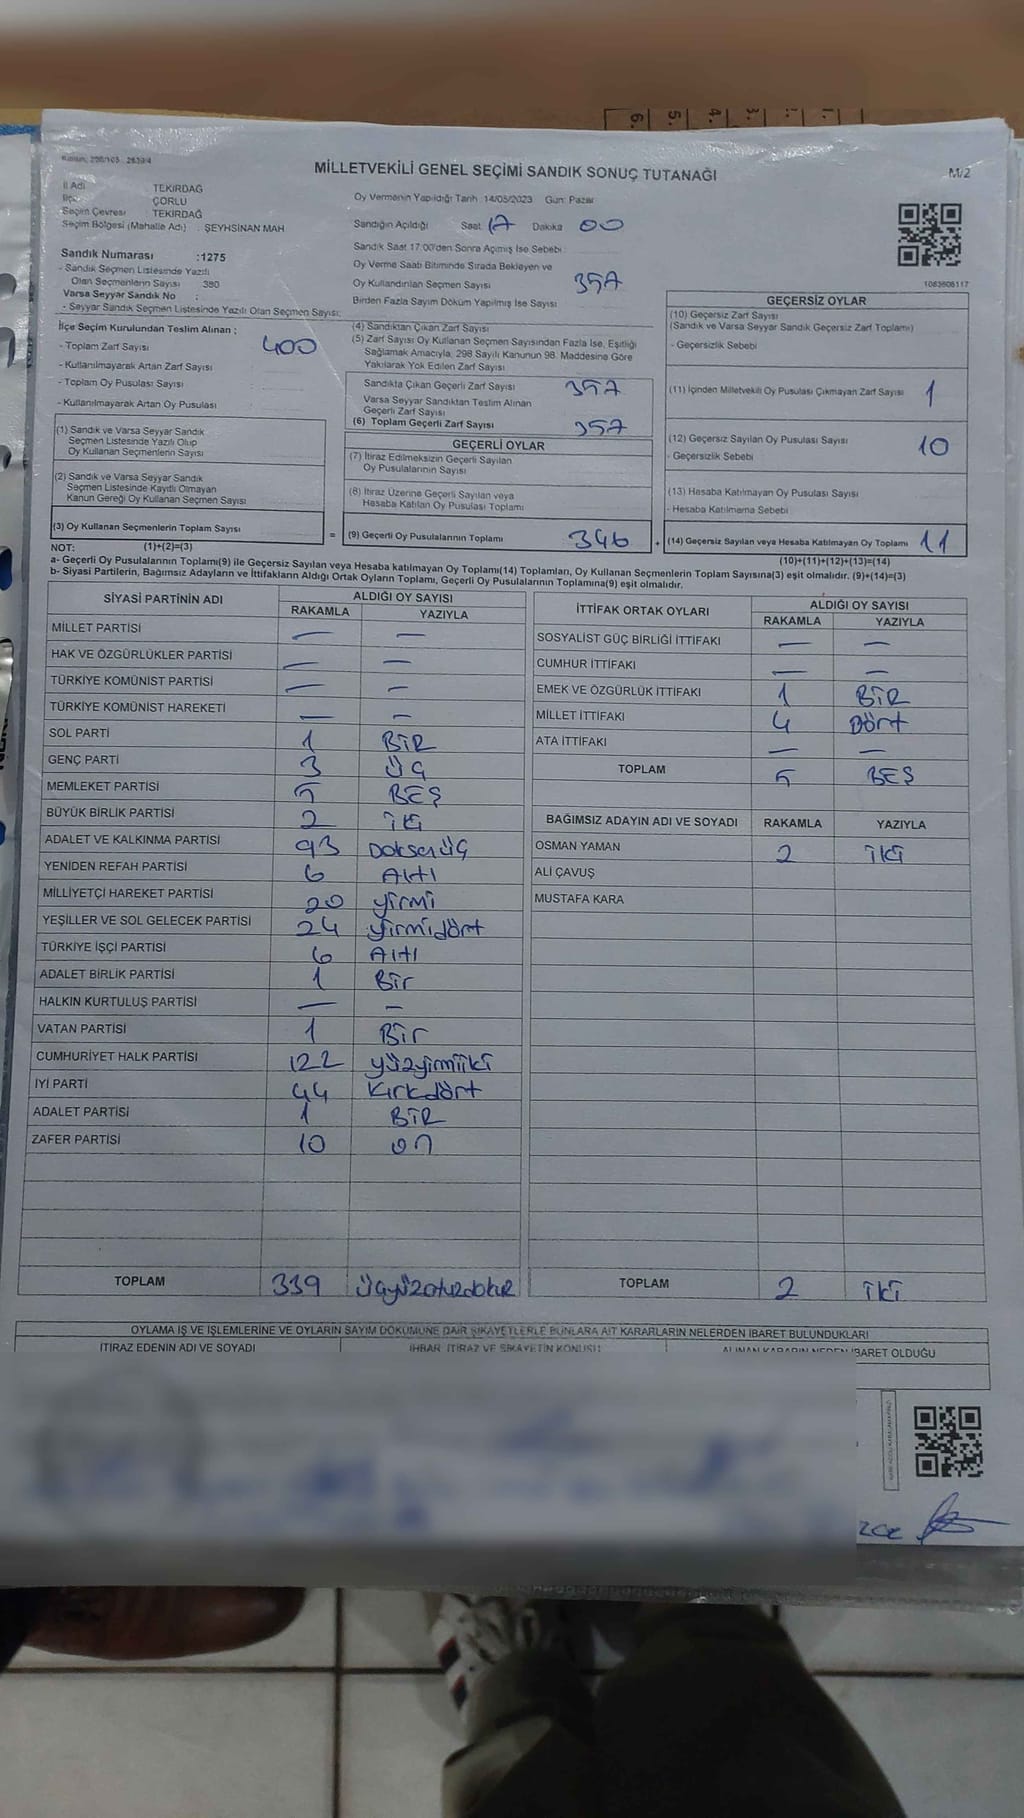 MİLLETVEKİLİ GENEL SEÇİMİ SANDIK SONUÇ TUTANAĞI
M/2
İl Adı TEKİRDAĞ
İlçe ÇORLU
Seçim Çevresi TEKİRDAĞ
Seçim Bölgesi (Mahalle Adı) : ŞEYHSİNAN MAH
Sandık Numarası :1275
- Sandık Seçmen Listesinde Yazılı
Olan Seçmenlerin Sayısı 380
Varsa Seyyar Sandık No :
- Seyyar Sandık Seçmen Listesinde Yazılı Olan Seçmen Sayısı:
Oy Vermenin Yapıldığı Tarih :14/05/2023 Gün: Pazar
Sandığın Açıldığı Saat 17 Dakika 00
Sandık Saat 17:00'den Sonra Açımış İse Sebebi :
Oy Verme Saati Bitiminde Sırada Bekleyen ve
Oy Kullandırılan Seçmen Sayısı 357
Birden Fazla Sayım Döküm Yapılmış İse Sayısı
1083608117
İlçe Seçim Kurulundan Teslim Alınan ;
- Toplam Zarf Sayısı 400
- Kullanılmayarak Artan Zarf Sayısı
- Toplam Oy Pusulası Sayısı
- Kullanılmayarak Artan Oy Pusulası
(1) Sandık ve Varsa Seyyar Sandık
Seçmen Listesinde Yazılı Olup
Oy Kullanan Seçmenlerin Sayısı
(2) Sandık ve Varsa Seyyar Sandık
Seçmen Listesinde Kayıtlı Olmayan
Kanun Gereği Oy Kullanan Seçmen Sayısı
(3) Oy Kullanan Seçmenlerin Toplam Sayısı
(1)+(2)=(3)
(4) Sandıktan Çıkan Zarf Sayısı
(5) Zarf Sayısı Oy Kullanan Seçmen Sayısından Fazla İse, Eşitliği
Sağlamak Amacıyla, 298 Sayılı Kanunun 98. Maddesine Göre
Yakılarak Yok Edilen Zarf Sayısı
Sandıkta Çıkan Geçerli Zarf Sayısı 357
Varsa Seyyar Sandıktan Teslim Alınan
Geçerli Zarf Sayısı
(6) Toplam Geçerli Zarf Sayısı 357
GEÇERLİ OYLAR
(7) İtiraz Edilmeksizin Geçerli Sayılan
Oy Pusulalarının Sayısı
(8) İtiraz Üzerine Geçerli Sayılan veya
Hesaba Katılan Oy Pusulası Toplamı
= (9) Geçerli Oy Pusulalarının Toplamı 346 +
GEÇERSİZ OYLAR
(10) Geçersiz Zarf Sayısı
(Sandık ve Varsa Seyyar Sandık Geçersiz Zarf Toplamı)
- Geçersizlik Sebebi
(11) İçinden Milletvekili Oy Pusulası Çıkmayan Zarf Sayısı 1
(12) Geçersiz Sayılan Oy Pusulası Sayısı 10
- Geçersizlik Sebebi
(13) Hesaba Katılmayan Oy Pusulası Sayısı
- Hesaba Katılmama Sebebi
(14) Geçersiz Sayılan veya Hesaba Katılmayan Oy Toplamı 11
(10)+(11)+(12)+(13)=(14)
NOT:
a- Geçerli Oy Pusulalarının Toplamı(9) ile Geçersiz Sayılan veya Hesaba katılmayan Oy Toplamı(14) Toplamları, Oy Kullanan Seçmenlerin Toplam Sayısına(3) eşit olmalıdır. (9)+(14)=(3)
b- Siyasi Partilerin, Bağımsız Adayların ve İttifakların Aldığı Ortak Oyların Toplamı, Geçerli Oy Pusulalarının Toplamına(9) eşit olmalıdır.
SİYASİ PARTİNİN ADI ALDIĞI OY SAYISI
RAKAMLA YAZIYLA
MİLLET PARTİSİ — —
HAK VE ÖZGÜRLÜKLER PARTİSİ — —
TÜRKİYE KOMÜNİST PARTİSİ — —
TÜRKİYE KOMÜNİST HAREKETİ — —
SOL PARTİ 1 BİR
GENÇ PARTİ 3 ÜÇ
MEMLEKET PARTİSİ 5 BEŞ
BÜYÜK BİRLİK PARTİSİ 2 İKİ
ADALET VE KALKINMA PARTİSİ 93 DoksenÜÇ
YENİDEN REFAH PARTİSİ 6 Altı
MİLLİYETÇİ HAREKET PARTİSİ 20 yirmi
YEŞİLLER VE SOL GELECEK PARTİSİ 24 yirmidört
TÜRKİYE İŞÇİ PARTİSİ 6 Altı
ADALET BİRLİK PARTİSİ 1 Bir
HALKIN KURTULUŞ PARTİSİ — —
VATAN PARTİSİ 1 Bir
CUMHURİYET HALK PARTİSİ 122 yüzyirmiiki
İYİ PARTİ 44 Kırkdört
ADALET PARTİSİ 1 BİR
ZAFER PARTİSİ 10 on
TOPLAM 339 Üçyüzotuzdokuz
İTTİFAK ORTAK OYLARI ALDIĞI OY SAYISI
RAKAMLA YAZIYLA
SOSYALİST GÜÇ BİRLİĞİ İTTİFAKI — —
CUMHUR İTTİFAKI — —
EMEK VE ÖZGÜRLÜK İTTİFAKI 1 BİR
MİLLET İTTİFAKI 4 Dört
ATA İTTİFAKI — —
TOPLAM 5 BEŞ
BAĞIMSIZ ADAYIN ADI VE SOYADI RAKAMLA YAZIYLA
OSMAN YAMAN 2 İKİ
ALİ ÇAVUŞ
MUSTAFA KARA
TOPLAM 2 İKİ
OYLAMA İŞ VE İŞLEMLERİNE VE OYLARIN SAYIM DÖKÜMÜNE DAİR ŞİKAYETLERLE BUNLARA AİT KARARLARIN NELERDEN İBARET BULUNDUKLARI
İTİRAZ EDENİN ADI VE SOYADI İHBAR İTİRAZ VE ŞİKAYETİN KONUSU ALINAN KARARIN NEDEN İBARET OLDUĞU